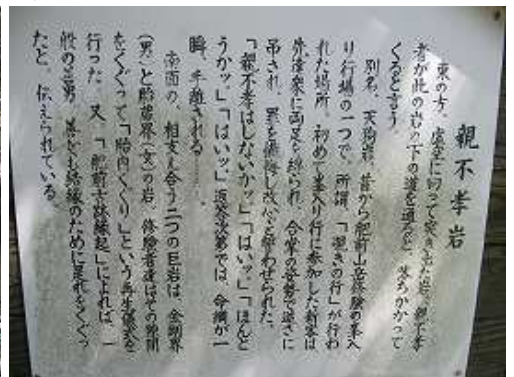 親不孝岩
東の方、虚空に向って突き出た岩。親不孝
者が此の岩の下の道を通ると、落ちかかって
くると言う。
別名、天狗岩。昔から肥前山岳修験の峯入
り行場の一つで、所謂、「覗きの行」が行わ
れた場所。初めて峯入り行に参加した新客は
先達衆に両足を縛られ、合掌の姿勢で逆さに
吊され、罪を懺悔し改心を誓わせられた。
「親不孝はしないかッ。」「はいッ。」「ほんと
うかッ。」「はいッ。」返答次第では、命綱が一
瞬、手離される……。
南面の、相支え合う二つの巨岩は、金剛界
(男)と胎蔵界(女)の岩。修験者達はその隙間
をくぐって「胎内くぐり」という再生儀式を
行った。又、「肥前古跡縁起」によれば、一
般の善男善女も結縁のために是れをくぐっ
たと、伝えられている。